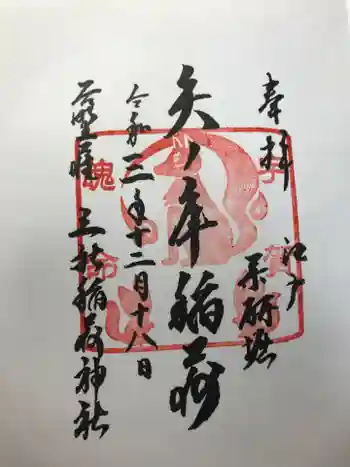 奉拝
江戸
薬研堀
矢ノ庫稲荷
令和三年十二月十八日
三社稲荷神社
宇賀
魂命